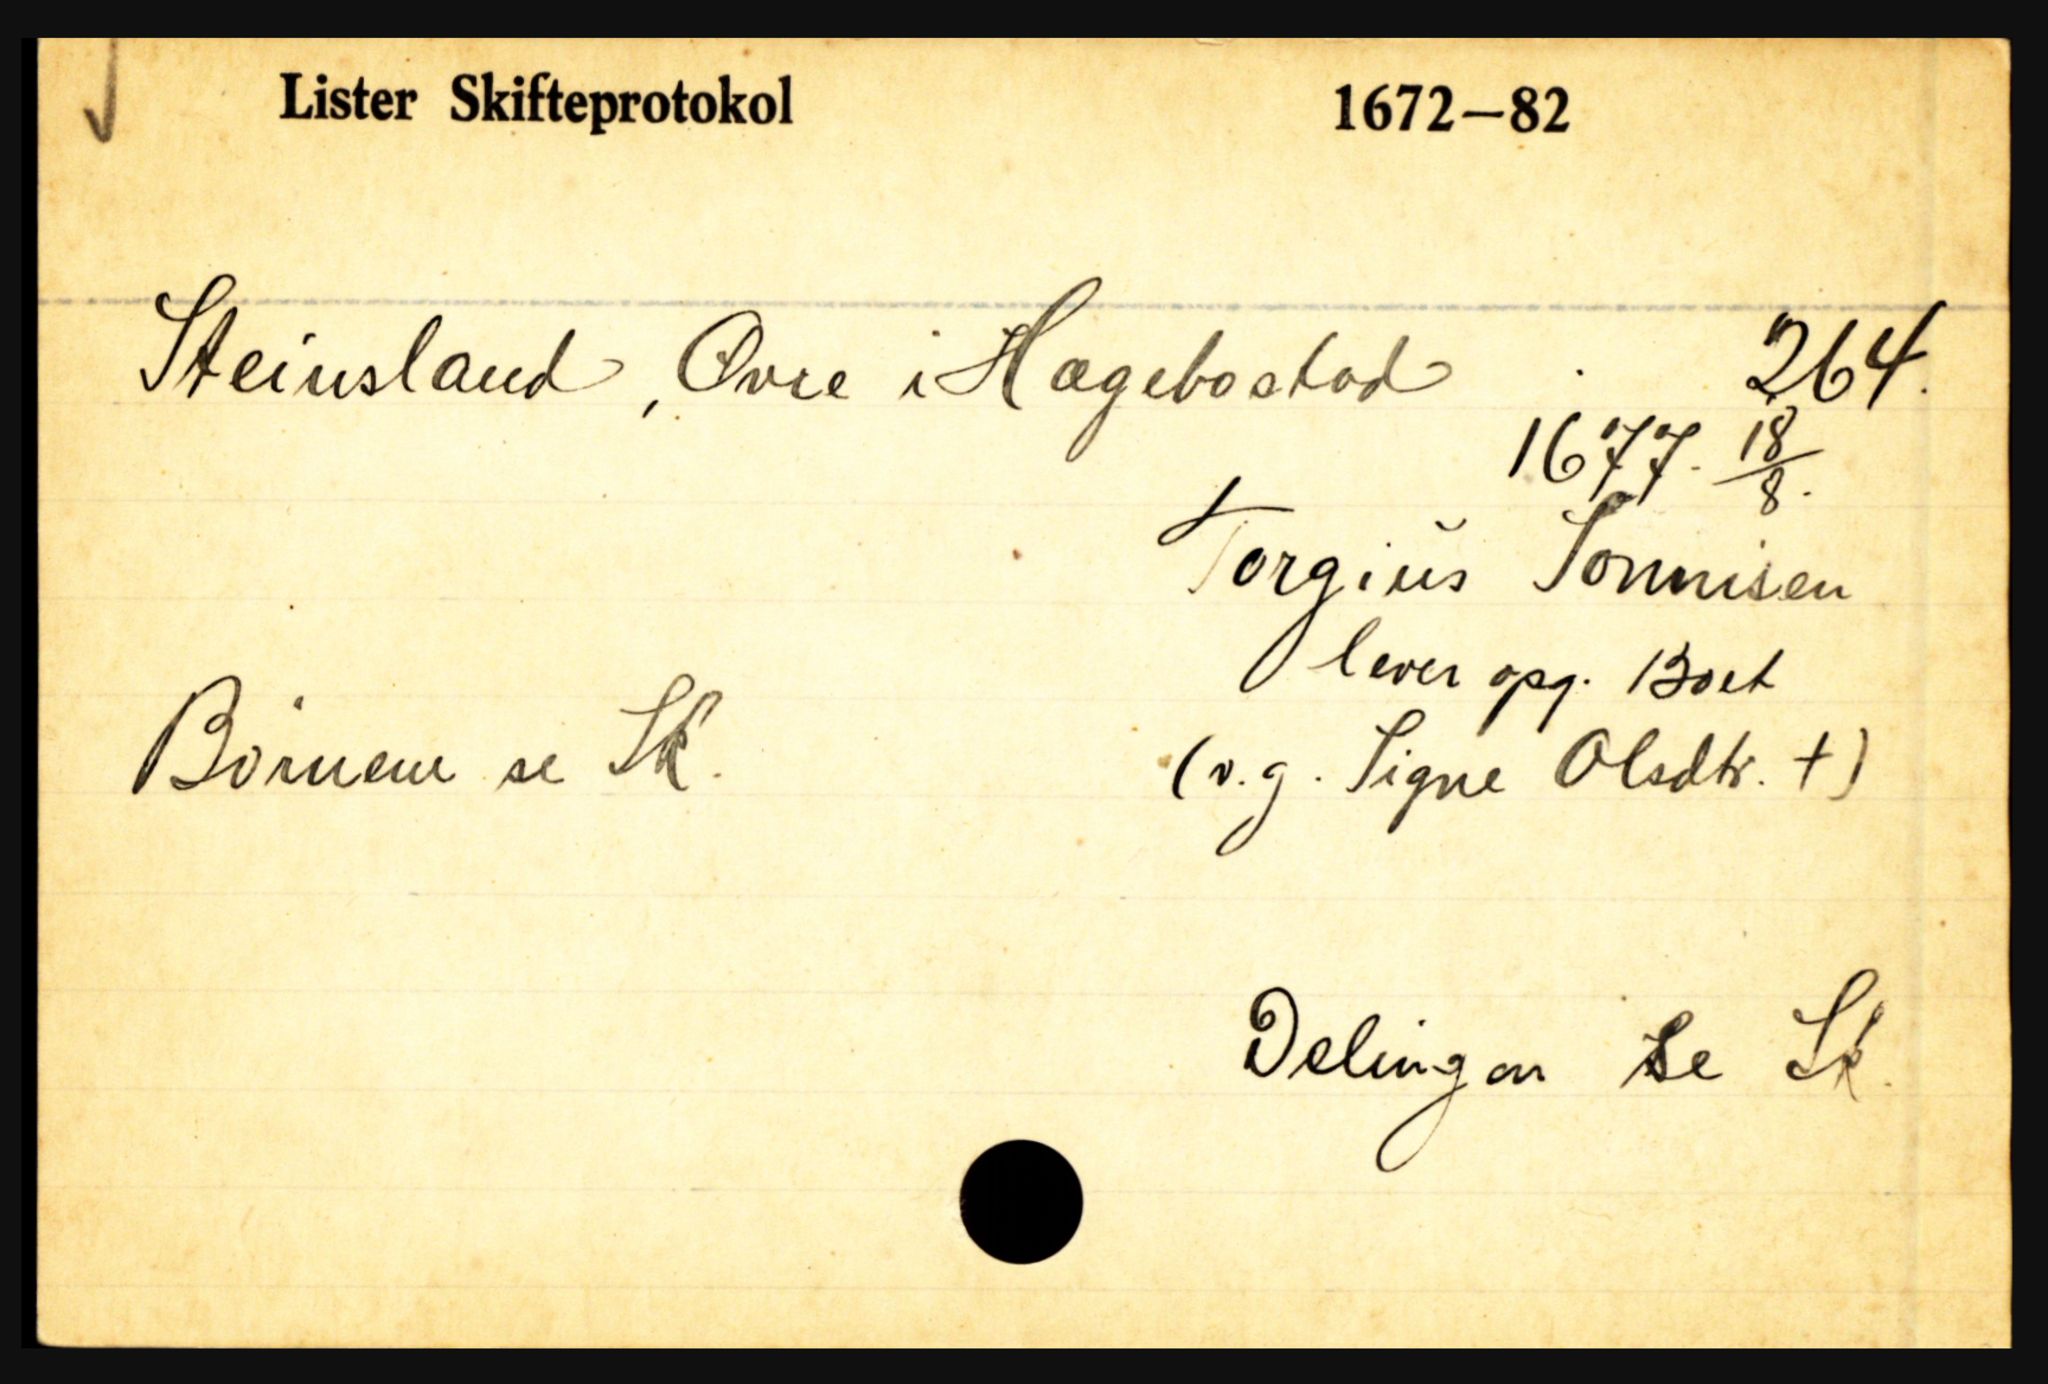 Lister Skifteprotokol 1672–82
Steinsland, Øvre i Hægebostad 264.
1677. 18/8.
Torgiŭs Tönnisen
lever opg. Boet
Börnene se Sk. (v. g. Signe Olsdtr. †)
Delingen se Sk.